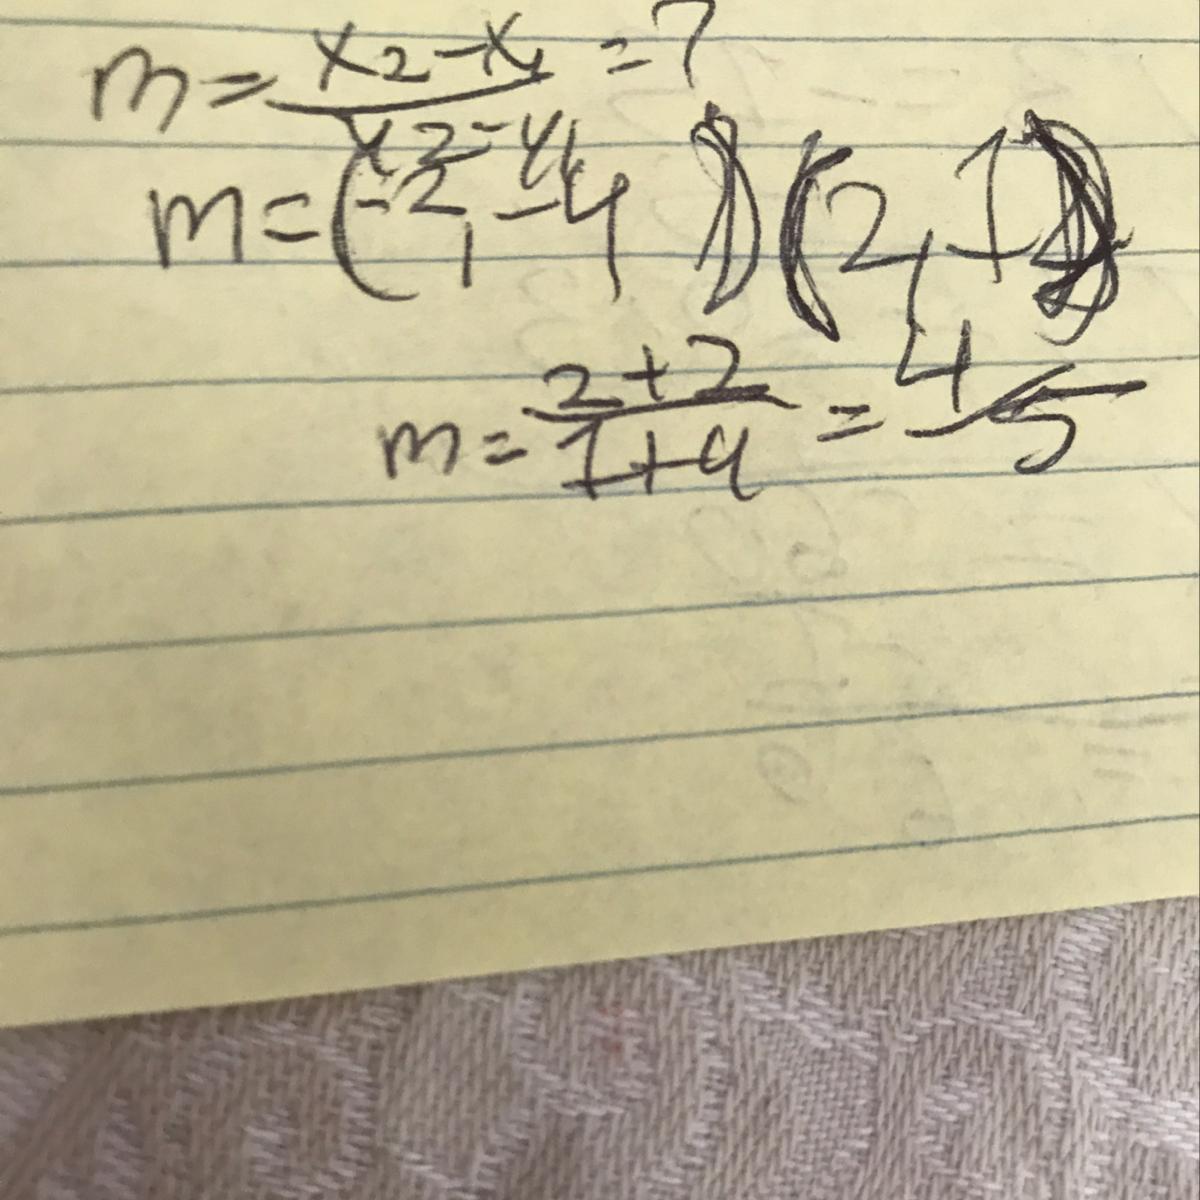 m = x2-x1 / y2-y1 = ?
m = (-2, -4) (2, 1)
m = 2+2 / 1+4 = 4/5